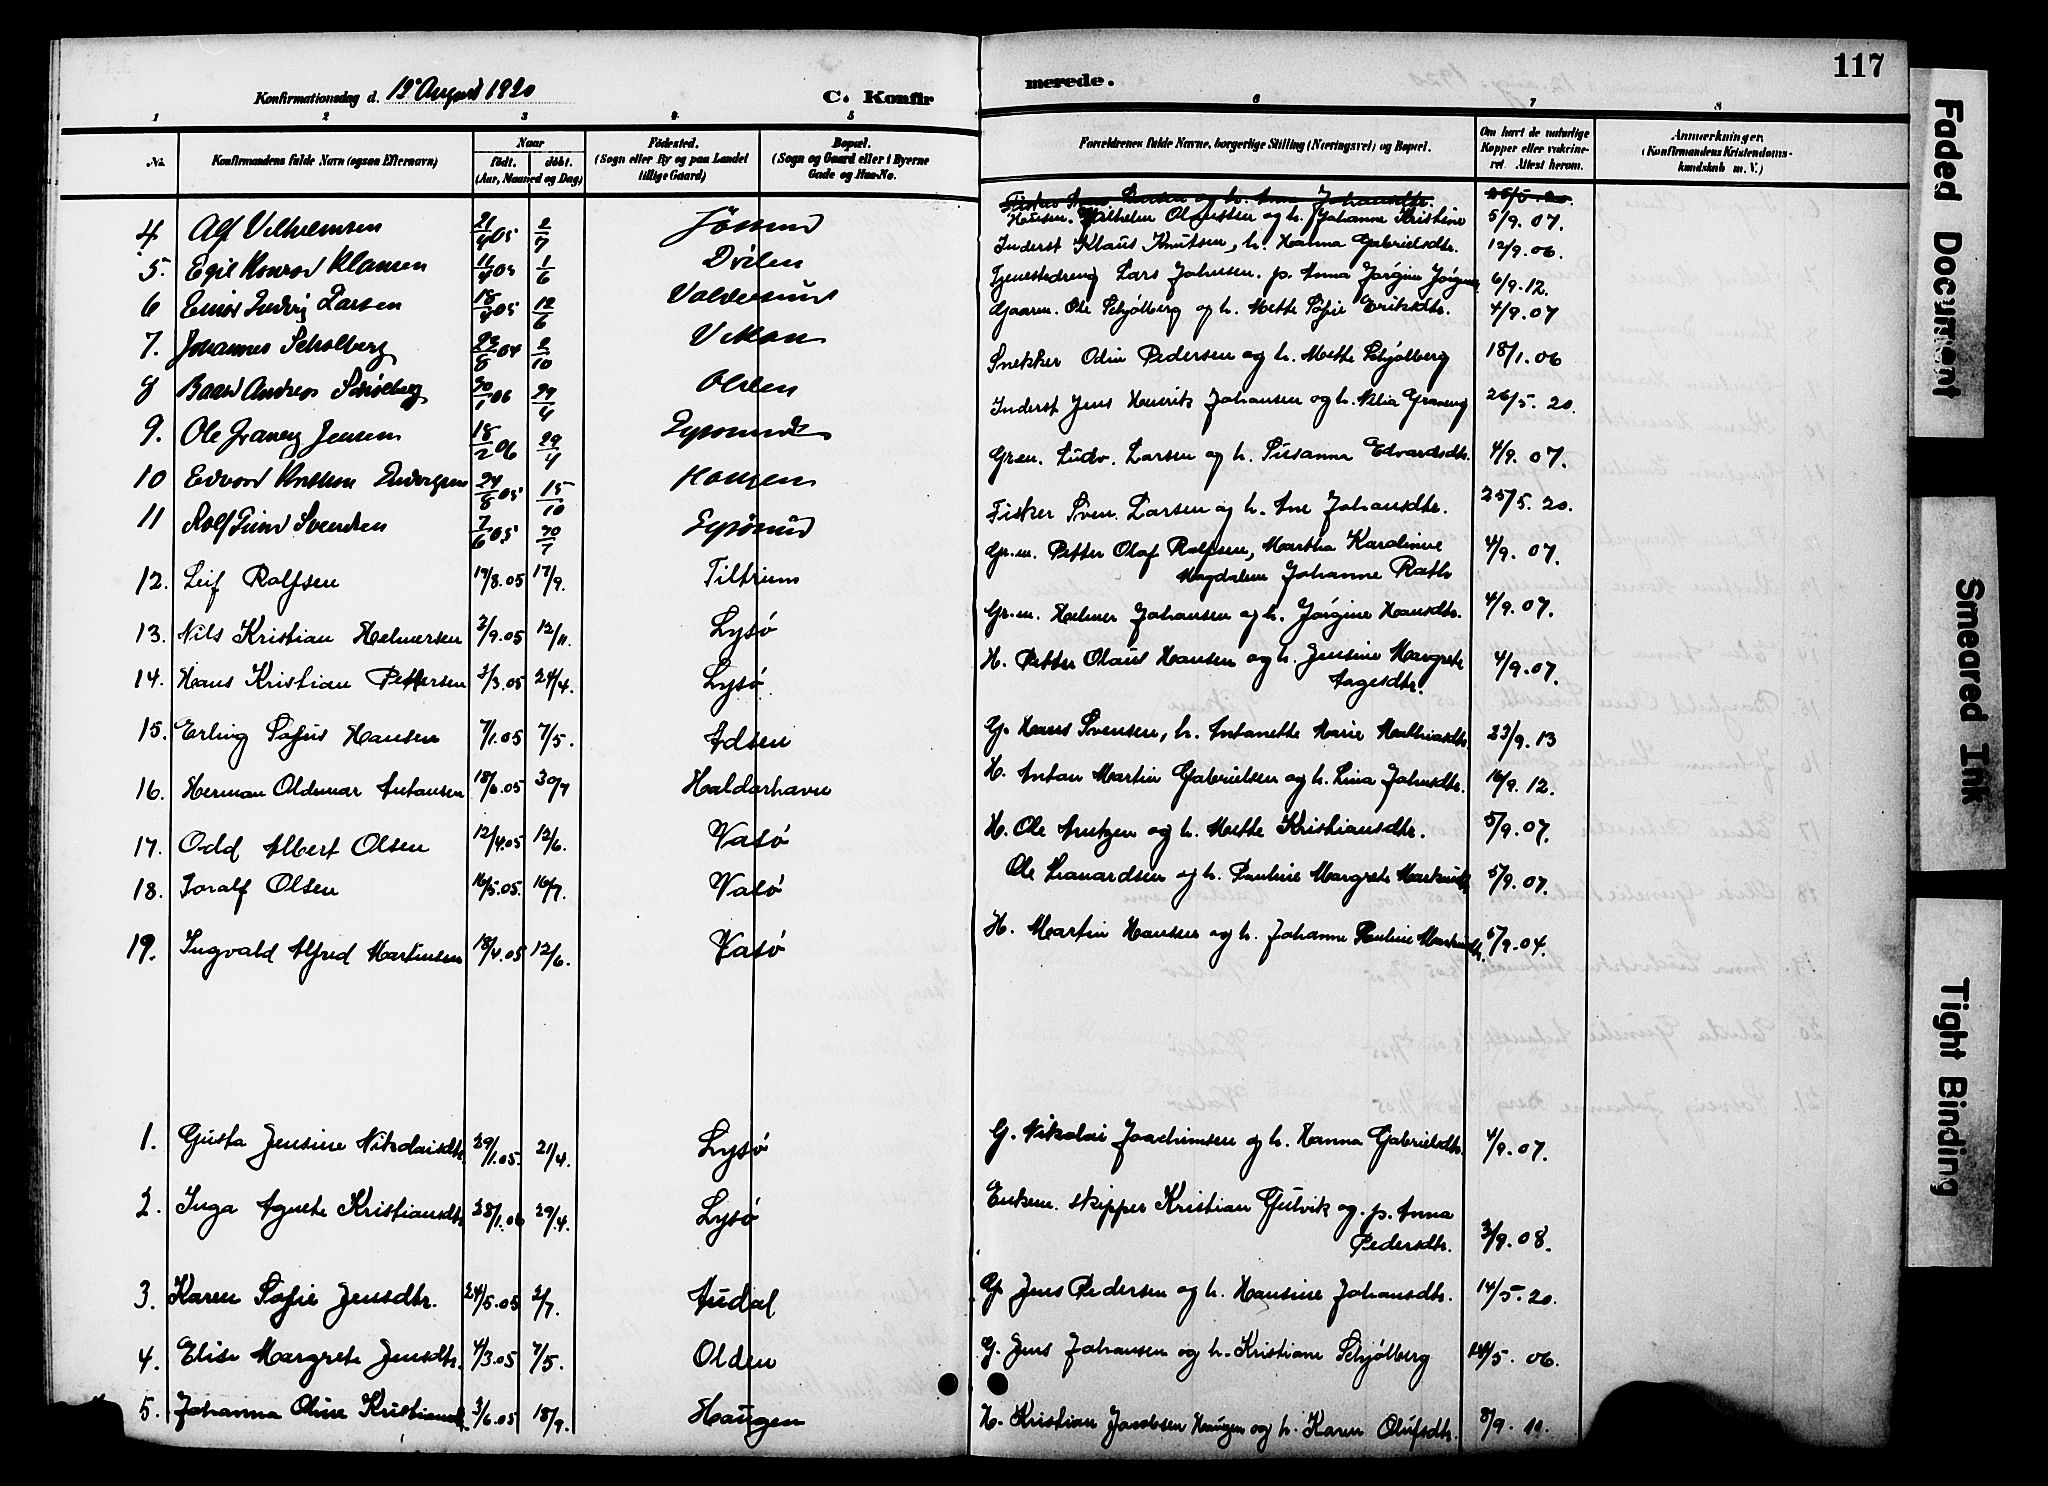 117
Konfirmationsdag d. 15 August 1920
C. Konfirmerede.
1 2 3 4 5 6 7 8
No. Konfirmandens fulde Navn (ogsaa Efternavn) Naar født. døbt. (Aar, Maaned og Dag) Fødested. (Sogn eller By og paa Landet tillige Gaard) Bopæl. (Sogn og Gaard eller i Byerne Gade og Hus-No. Forældrenes fulde Navne, borgerlige Stilling (Næringsvei) og Bopæl. Om havt de naturlige Kopper eller vakcineret. Attest herom. Anmærkninger. (Konfirmandens Kristendomskundskab m. V.)
Fisker Larsen og h. Anna Johansdtr.
4 Alf Vilhelmsen 21/4 05 2/7 Husm. Vilhelm Olausten og h. Johanne Kristine 5/9. 07.
5. Egil Konrad Klausen 11/4 05 1/6 Inderst Klaus Knutsen, h. Hanna Gabrielsdtr. 12/9. 06.
6 Einar Ludvig Larsen 18/4 05 12/6 Valdersund Tjenestedreng Lars Johnsen. p. Anna Jørgine 6/9. 12.
7. Johannes Schølberg 23/8 04 2/10 Gaarm. Ole Schjølberg og h. Mette Sofie Eriksdtr. 4/9. 07
8 Baard Andreas Schølberg 30/1 06 29/4 Olden Snekker Odin Pedersen og h. Mette Schjølberg 18/1. 06
9. Ole Graneng Jensen 18/2 06 29/4 Inderst Jens Henrik Johansen og h. Graneng 26/5. 20.
10 Edvard Ludvigsen 24/8 05 15/10 Grm. Ludv. Larsen og h. Susanna Edvardsdtr. 4/9. 07.
11 Rolf Svendsen 7/6 05 30/7 Fisker Sven Larsen og h. Ane Johansdtr. 25/5. 20.
12. Leif Rolfsen 19/8. 05 17/9. Tiltrum Gr.m. Petter Olaf Rolfsen, Martha Karoline Magdalene Johanne Rath 4/9. 07.
13. Nils Kristian Helmersen 3/9. 05 12/11. Lysø Gr.m. Helmer Johansen og h. Jørgine Hansdtr. 4/9. 07.
14. Hans Kristian Pettersen 3/3. 05 24/4. Lysø. H. Petter Olaus Hansen og h. Jensine Margrete Aagesdtr. 4/9. 07.
15. Erling Sofus Hansen 7/1. 05 7/5. Adsen G. Hans Svensen, h. Antonette Marie Mathiasdtr. 23/9. 13
16. Herman Oldemar Antonsen 18/6. 05 30/7 Haldorhavn H. Anton Martin Gabrielsen og h. Lina Johnsdtr. 16/9. 12.
17. Odd Albert Olsen 12/4. 05 12/6. Vasø H. Ole Arntzen og h. Mette Kristiansdtr. 5/9. 07.
18. Toralf Olsen 16/5. 05. 16/7. Vasø Ole Leonardsen og h. Pauline Margrete 5/9. 07.
19. Ingvald Alfred Martinsen 18/4. 05 12/6. Vasø H. Martin Hansen og h. Johanne Pauline 5/9. 04.
1. Gusta Jensine Nikolaisdtr. 29/1. 05. 21/4. Lysø G. Nikolai Joachimsen og h. Hanna Gabrielsdtr. 4/9. 07.
2. Inga Agnete Kristiansdtr 28/1. 06 29/4. Lysø Enkem. skipper Kristian Gulvik og p. Anna Pedersdtr. 3/9. 08.
3. Karen Sofie Jensdtr. 24/5. 05 2/7. Audal G. Jens Pedersen og h. Hansine Johansdtr. 14/5. 20.
4. Elise Margrete Jensdtr. 4/3. 05 7/5. Olden G. Jens Johansen og h. Kristiane Schjølberg 14/5. 06.
5. Johanna Oline 3/6. 05 18/9. Haugen H. Kristian Jacobsen Haugen og h. Karen Olufsdtr. 8/9. 10.
Faded Document
Smeared Ink
Tight Binding